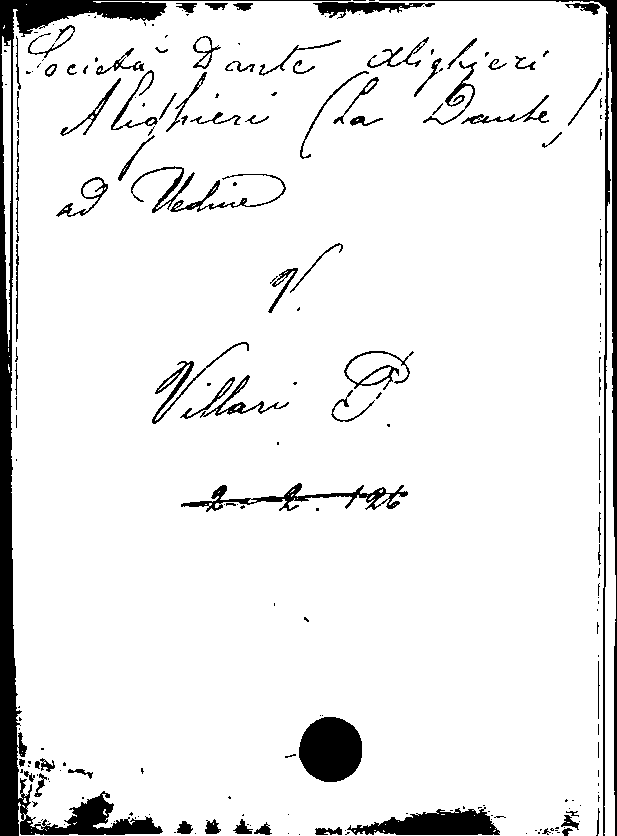 Società Dante Alighieri
Alighieri (La Dante)
ad Vedine
V.
Villari P.
2. 2. 126